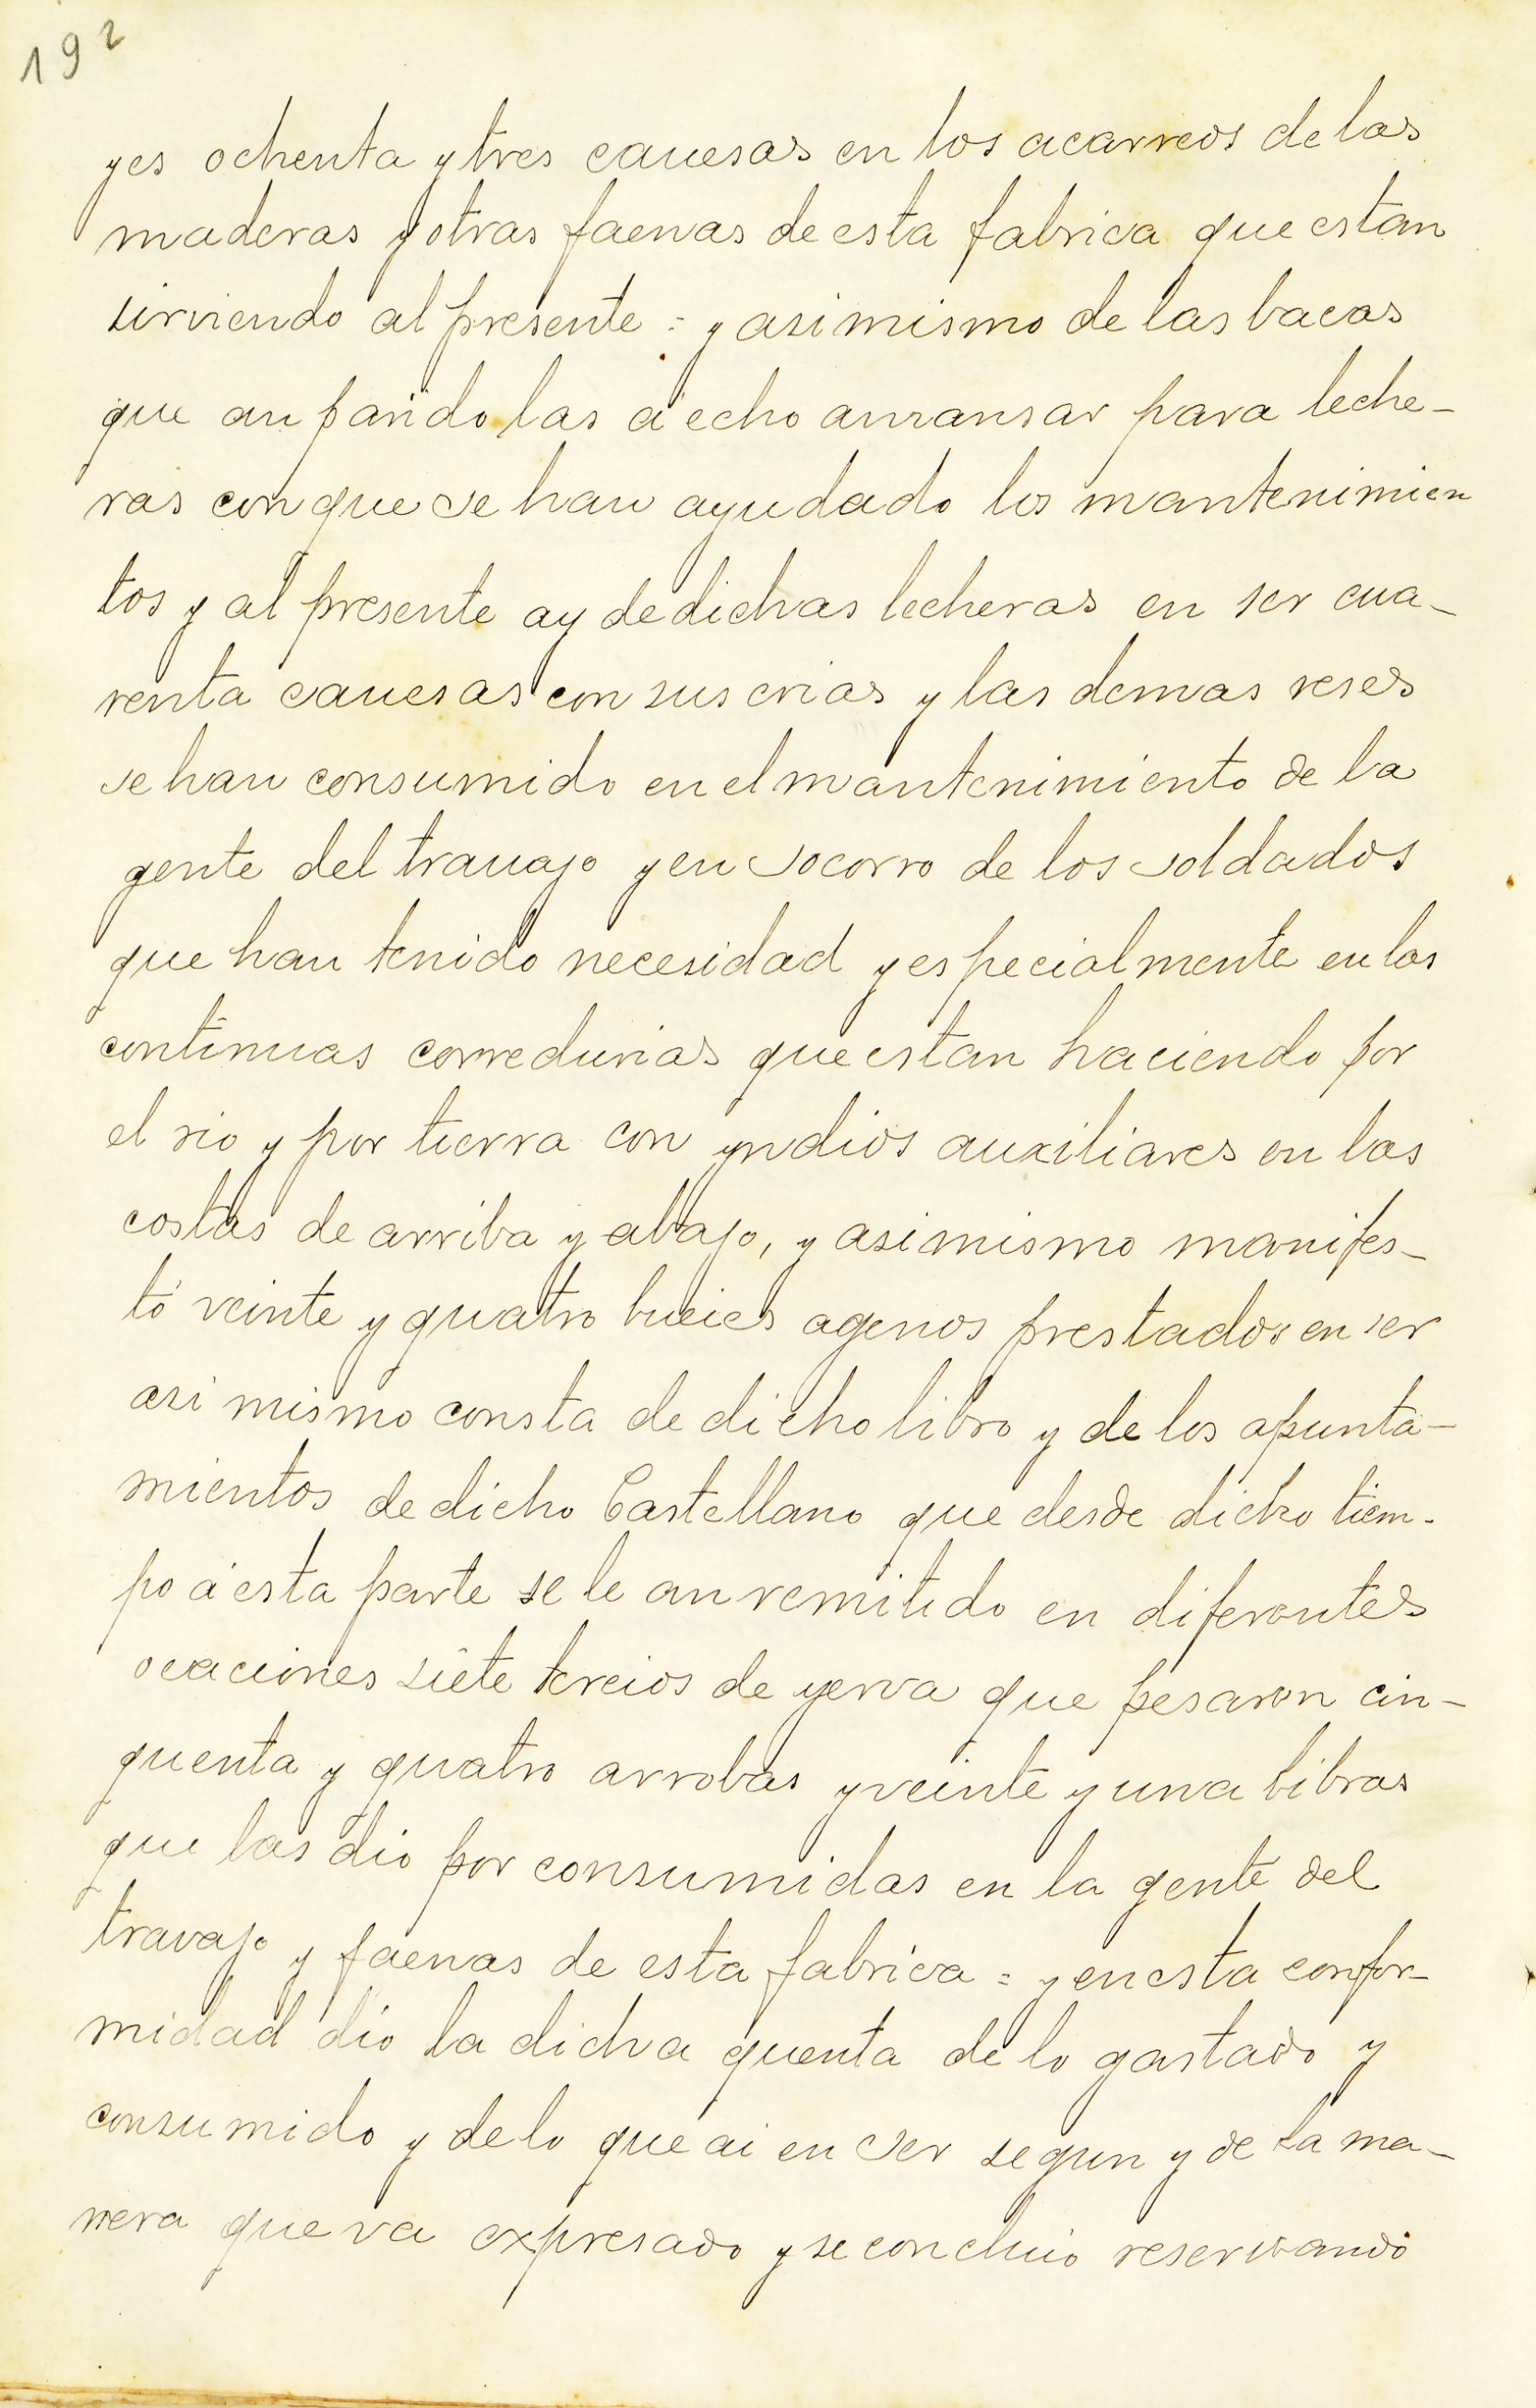 192
yes ochenta y tres cauesas en los acarreos de las
maderas y otras faenas de esta fabrica que estan
sirviendo al presente = y asimismo de las bacas
que an parido las a echo amansar para leche-
ras con que se han ayudado los mantenimien
tos y al presente ay de dichas lecheras en ser cua-
renta cauesas con sus crias y las demas reses
se han consumido en el mantenimiento de la
gente del trauajo y en socorro de los soldados
que han tenido necesidad y especialmente en las
continuas corredurias que estan haciendo por
el rio y por tierra con yndios auxiliares en las
costas de arriba y abajo, y asimismo manifes-
tó veinte y quatro bueies agenos prestados en ser
asi mismo consta de dicho libro y de los apunta-
mientos de dicho Castellano que desde dicho tiem-
po á esta parte se le an remitido en diferentes
ocaciones siete tercios de yerva que pesaron cin-
quenta y quatro arrobas y veinte y una libras
que las dio por consumidas en la gente del
travajo y faenas de esta fabrica = y en esta confor-
midad dio la dicha quenta de lo gastado y
consumido y de lo que ai en ser segun y de la ma-
nera que va expresado y se concluio reservando